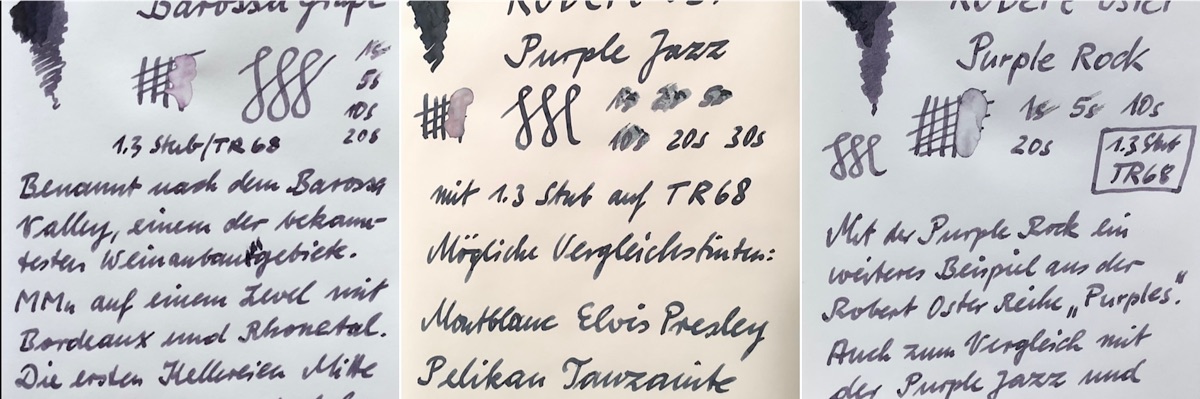 Barossa Grape
1s
5s
10s
20s
1.3 Stub/TR68
Benannt nach dem Barossa
Valley, einem der bekann-
testen Weinanbaugebiete.
MMn auf einem Level mit
Bordeaux und Rhonetal.
Die ersten Kellereien Mitte
Robert Oster
Purple Jazz
1s 5s
10s 20s 30s
mit 1.3 Stub auf TR68
Mögliche Vergleichstinten:
Montblanc Elvis Presley
Pelikan Tanzanite
Robert Oster
Purple Rock
1s 5s 10s
20s
1.3 Stub
TR68
Mit der Purple Rock ein
weiteres Beispiel aus der
Robert Oster Reihe „Purples“.
Auch zum Vergleich mit
der Purple Jazz und